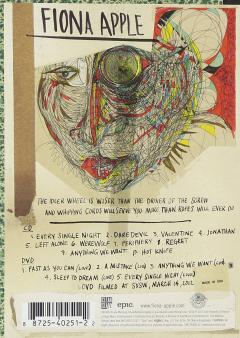 FIONA APPLE
THE IDLER WHEEL IS WISER THAN THE DRIVER OF THE SCREW
AND WHIPPING CORDS WILL SERVE YOU MORE THAN ROPES WILL EVER DO
CD
1. EVERY SINGLE NIGHT 2. DAREDEVIL 3. VALENTINE 4. JONATHAN
5. LEFT ALONE 6. WEREWOLF 7. PERIPHERY 8. REGRET
9. ANYTHING WE WANT 10. HOT KNIFE
DVD
1. FAST AS YOU CAN (LIVE) 2. A MISTAKE (LIVE) 3. ANYTHING WE WANT (LIVE)
4. SLEEP TO DREAM (LIVE) 5. EVERY SINGLE NIGHT (LIVE)
DVD FILMED AT SXSW, MARCH 14, 2012
epic
www.fiona-apple.com
8 8725-40251-2 2